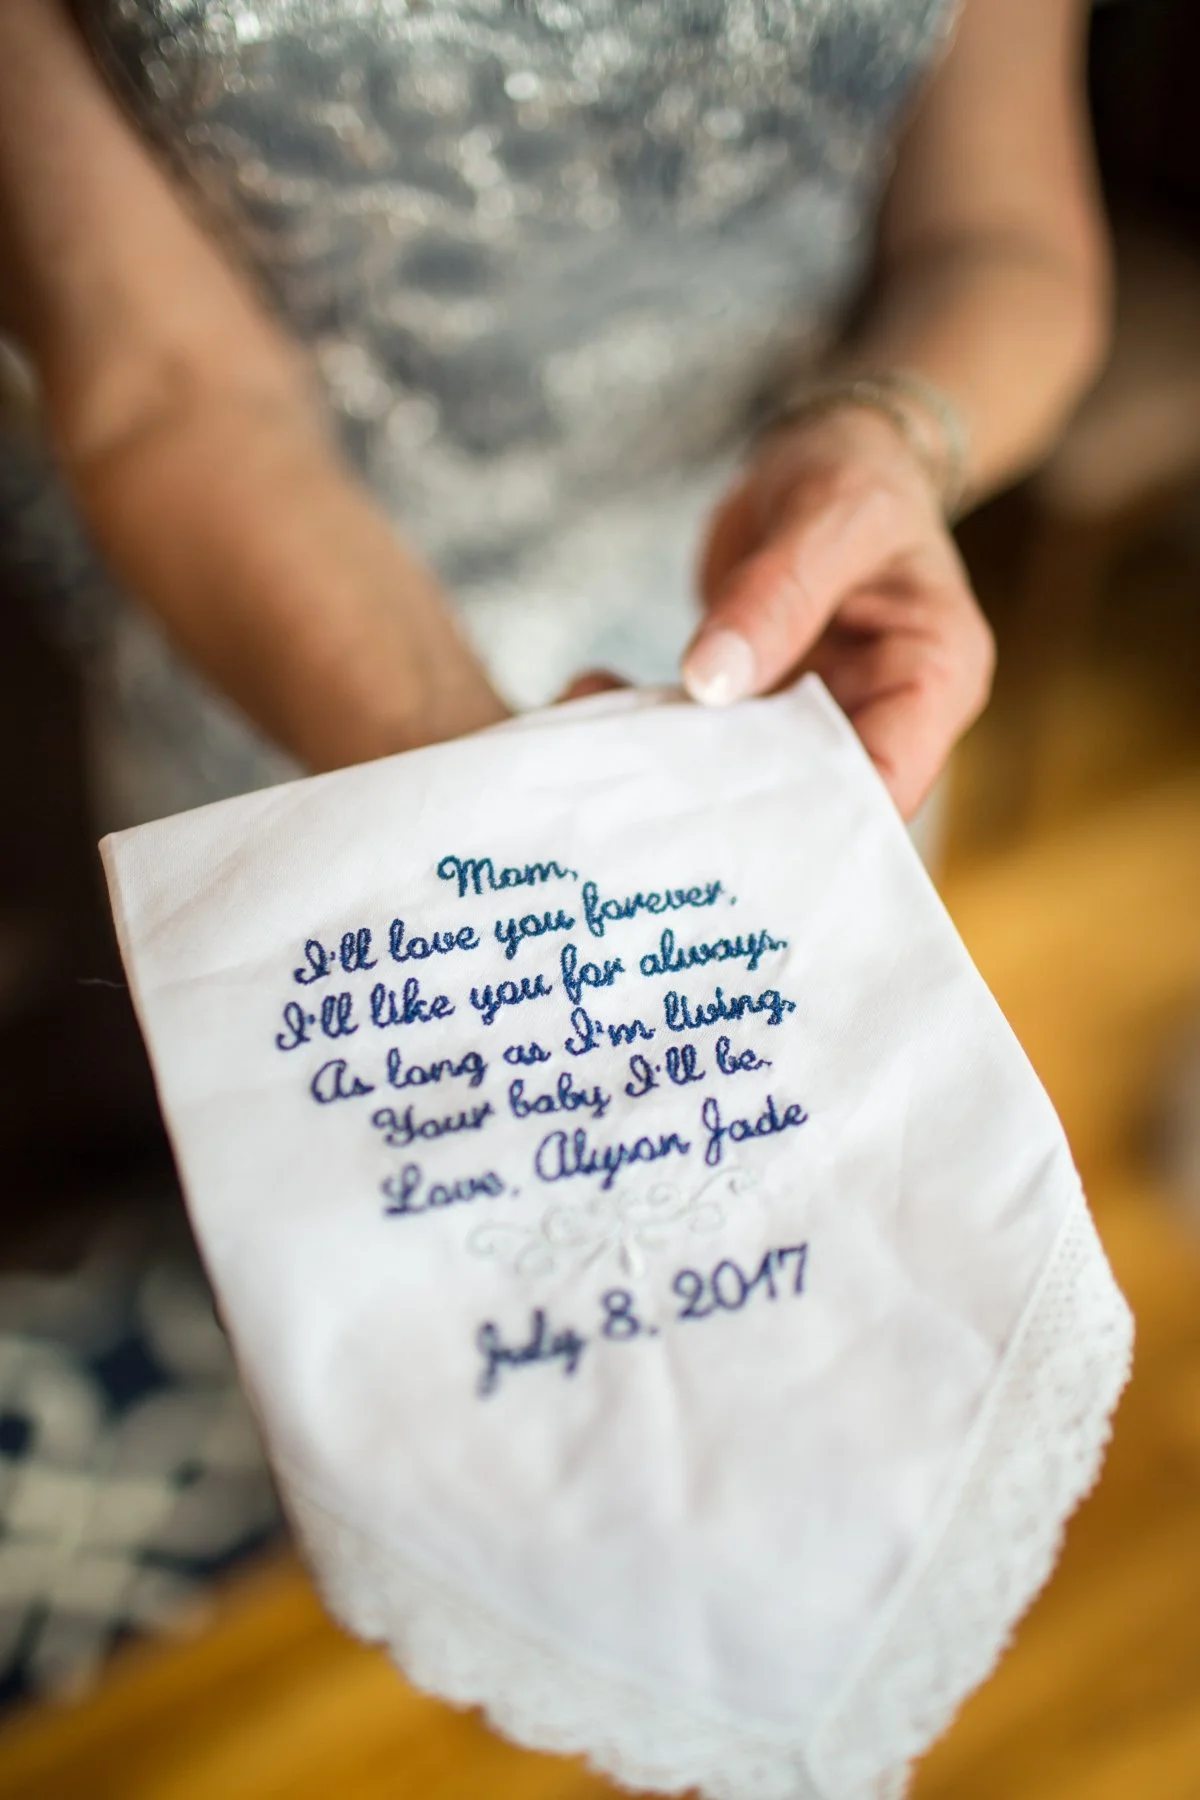 Mom,
I'll love you forever,
I'll like you for always,
As long as I'm living,
Your baby I'll be.
Love, Alyson Jade
July 8, 2017